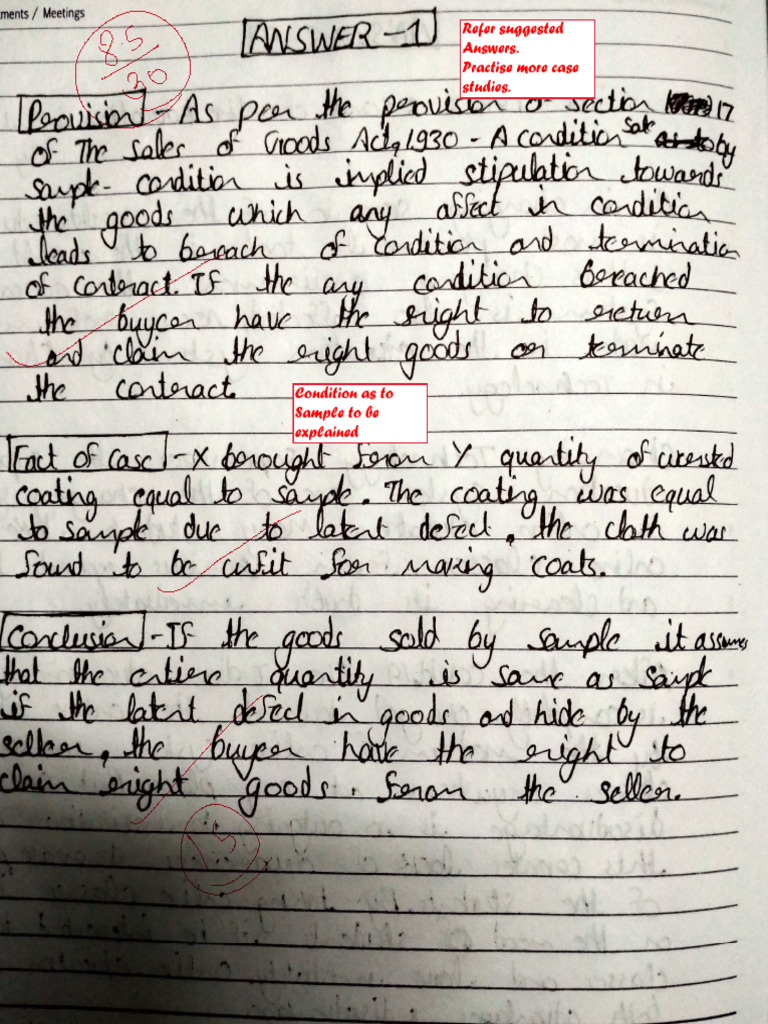 ments / Meetings
8.5/30
ANSWER - 1
Refer suggested
Answers.
Practise more case
studies.
Provision - As per the provision of section 17
of The Sales of Goods Act, 1930 - A condition Sale by
sample - condition is implied stipulation towards
the goods which any affect in condition
leads to breach of condition and termination
of contract. If the any condition breached
the buyer have the right to return
and claim the right goods or terminate
the contract.
Condition as to
Sample to be
explained
Fact of Case - X brought from Y quantity of worsted
coating equal to sample. The coating was equal
to sample due to latent defect, the cloth was
found to be unfit for making coats.
Conclusion - If the goods sold by sample it assumes
that the entire quantity is same as sample
if the latent defect in goods and hide by the
seller, the buyer have the right to
claim right goods. from the seller.